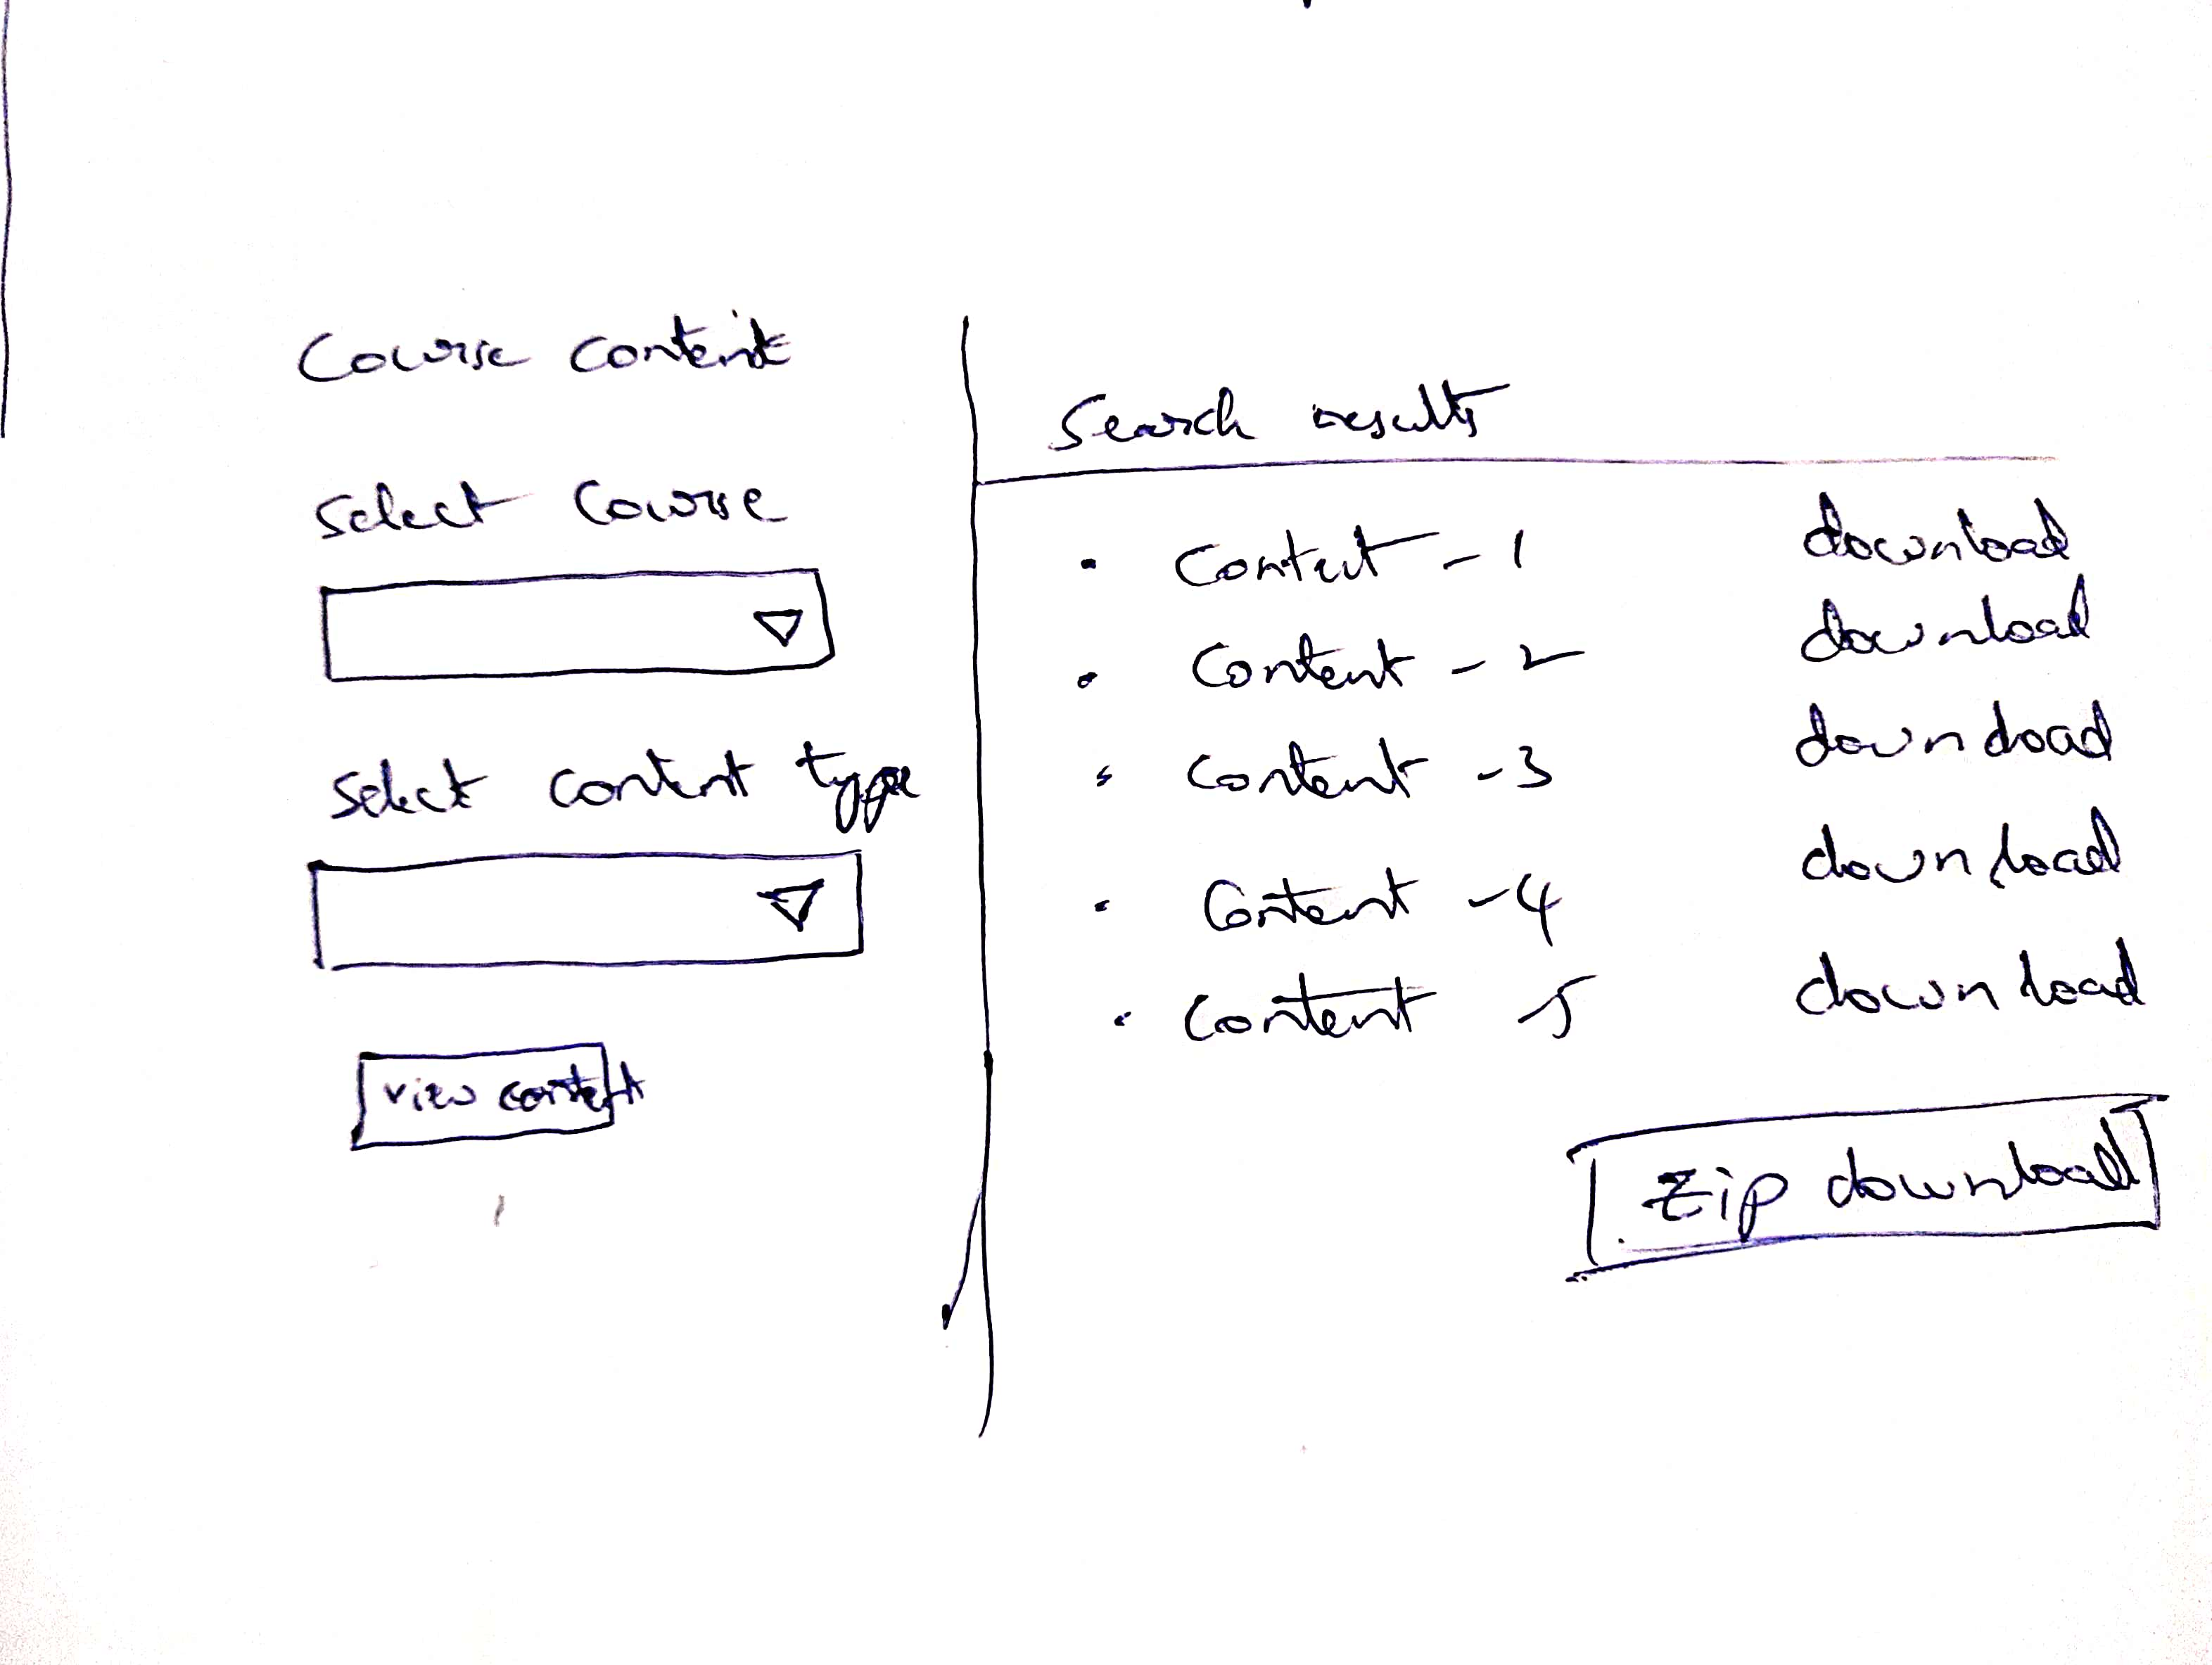 Course content
Select Course
Select content type
view content
Search results
• Content - 1 download
• Content - 2 download
• Content - 3 download
• Content - 4 download
• Content 5 download
Zip download